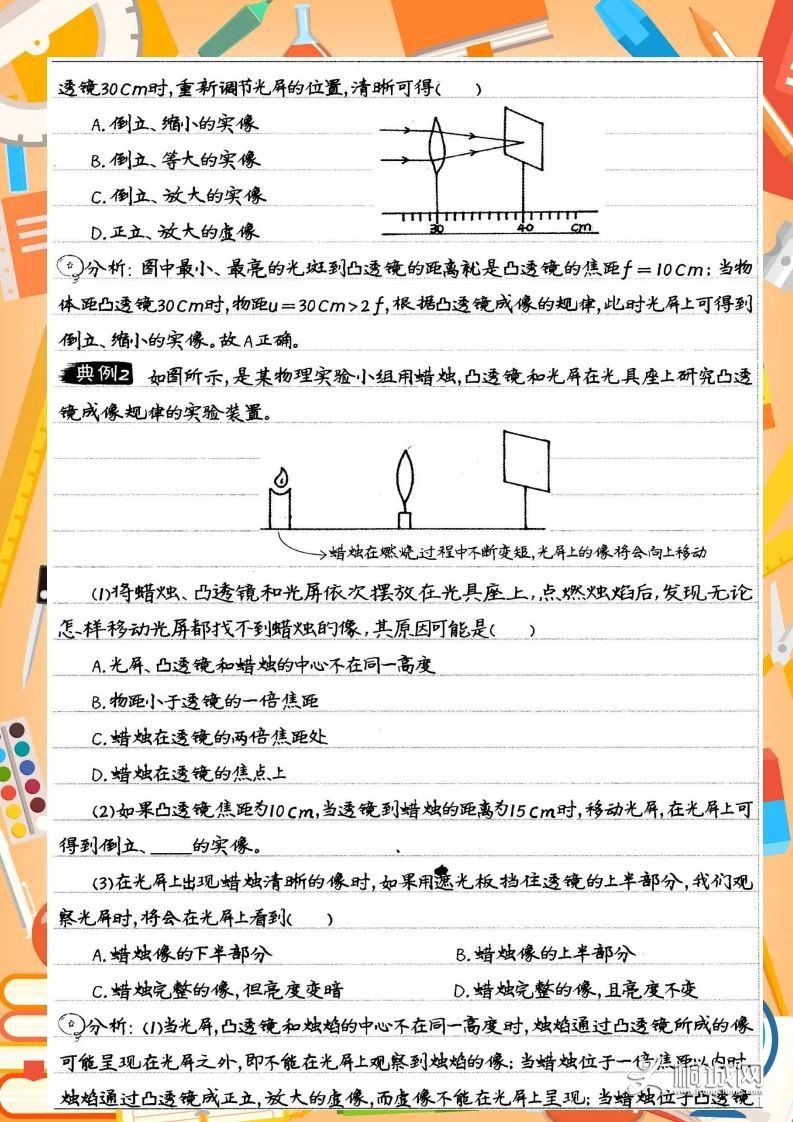 透镜30Cm时,重新调节光屏的位置,清晰可得(　　)
A.倒立、缩小的实像
B.倒立、等大的实像
C.倒立、放大的实像
D.正立、放大的虚像
30 40 cm
分析:图中最小、最亮的光斑到凸透镜的距离就是凸透镜的焦距f=10Cm;当物
体距凸透镜30Cm时,物距u=30Cm>2f,根据凸透镜成像的规律,此时光屏上可得到
倒立、缩小的实像。故A正确。
典例2 如图所示,是某物理实验小组用蜡烛,凸透镜和光屏在光具座上研究凸透
镜成像规律的实验装置。
蜡烛在燃烧过程中不断变短,光屏上的像将会向上移动
(1)将蜡烛、凸透镜和光屏依次摆放在光具座上,点燃烛焰后,发现无论
怎样移动光屏都找不到蜡烛的像,其原因可能是(　　)
A.光屏、凸透镜和蜡烛的中心不在同一高度
B.物距小于透镜的一倍焦距
C.蜡烛在透镜的两倍焦距处
D.蜡烛在透镜的焦点上
(2)如果凸透镜焦距为10cm,当透镜到蜡烛的距离为15cm时,移动光屏,在光屏上可
得到倒立、____的实像。
(3)在光屏上出现蜡烛清晰的像时,如果用遮光板挡住透镜的上半部分,我们观
察光屏时,将会在光屏上看到(　　)
A.蜡烛像的下半部分 B.蜡烛像的上半部分
C.蜡烛完整的像,但亮度变暗 D.蜡烛完整的像,且亮度不变
分析:(1)当光屏,凸透镜和烛焰的中心不在同一高度时,烛焰通过凸透镜所成的像
可能呈现在光屏之外,即不能在光屏上观察到烛焰的像;当蜡烛位于一倍焦距以内时
烛焰通过凸透镜成正立,放大的虚像,而虚像不能在光屏上呈现;当蜡烛位于凸透镜
桐城网